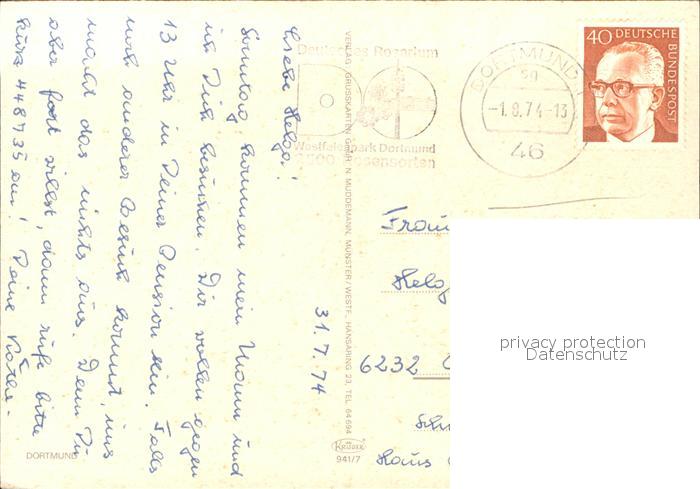 Liebe Helga!
Sonntag kommen mein Mann und
ich Dich besuchen. Wir wollen gegen
13 Uhr in Deiner Pension sein. Falls
noch anderer Besuch kommt, uns
macht das nichts aus. Wenn Du
aber fort willst, dann rufe bitte
kurz 448735 an! Deine Käthe.
31.7.74
DORTMUND
VERLAG GRUSSKARTEN GMBH. N. MUDDEMANN, MÜNSTER/WESTF., HANSARING 23, TEL. 64694
KRÜGER
941/7
Deutsches Rosarium
Westfalenpark Dortmund
Rosensorten
DORTMUND
-1.8.74-13
46
40 DEUTSCHE
BUNDESPOST
Frau
Helg
6232
Haus
privacy protection
Datenschutz